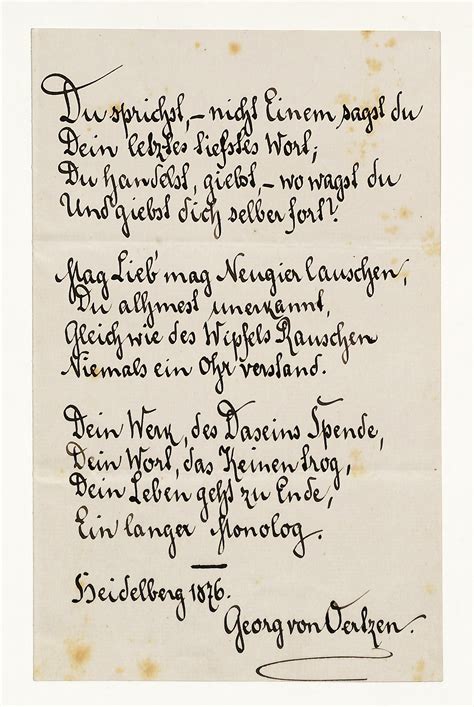 Du sprichst, – nicht Einem sagst du
Dein letztes tiefstes Wort;
Du handelst, giebst, – wo wagst du
Und giebst dich selber fort?
Mag Lieb' mag Neugier lauschen,
Du athmest unerkannt,
Gleich wie des Wipfels Rauschen
Niemals ein Ohr verstand.
Dein Werk, des Daseins Spende,
Dein Wort, das Keinen trog,
Dein Leben geht zu Ende,
Ein langer Monolog.
Heidelberg 1876.
Georg von Oertzen.